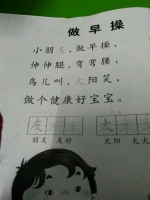 做早操
小朋友，做早操，
伸伸腿，弯弯腰。
鸟儿叫，太阳笑，
做个健康好宝宝。
友
太
朋友 友好
太阳 太太